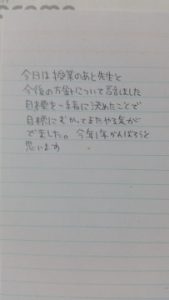 今日は授業のあと先生と
今後の方針について話しました
目標を一緒に決めたことで
目標にむかってまたやる気が
でました。今年1年がんばろうと
思います